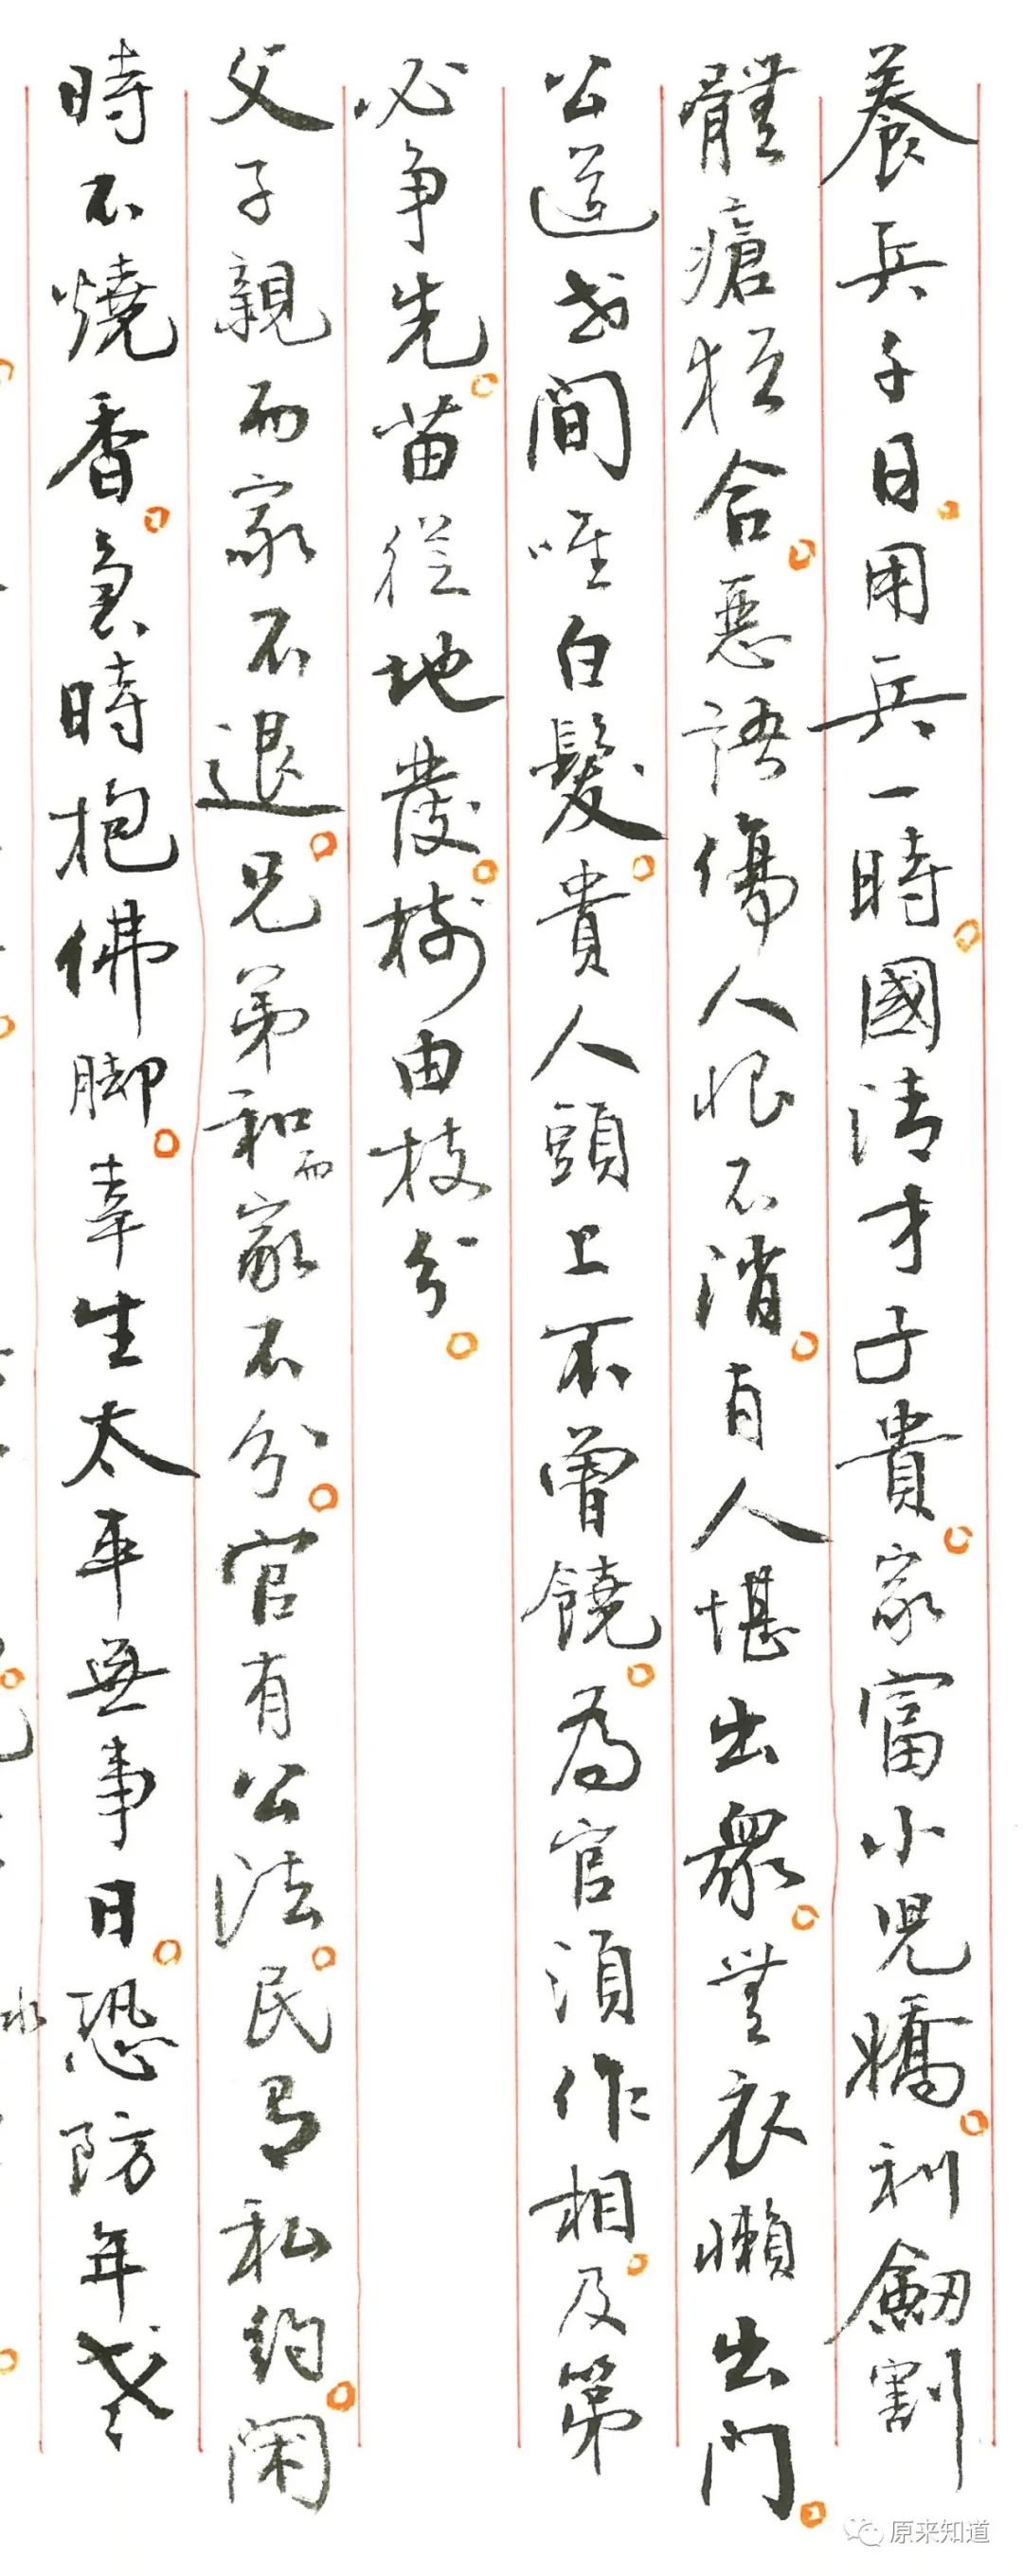 養兵千日。用兵一時。國清才子貴。家富小児嬌。利劔割
體瘡猶合。惡語傷人恨不消。有人堪出衆。無衣懶出門。
公道世間唯白髮。貴人頭上不曾饒。為官須作相。及第
必争先。苗從地發。樹由枝分。
父子親而家不退。兄弟和而家不分。官有公法。民有私約。閑
時不燒香。急時抱佛脚。幸生太平無事日。恐防年老
原来知道